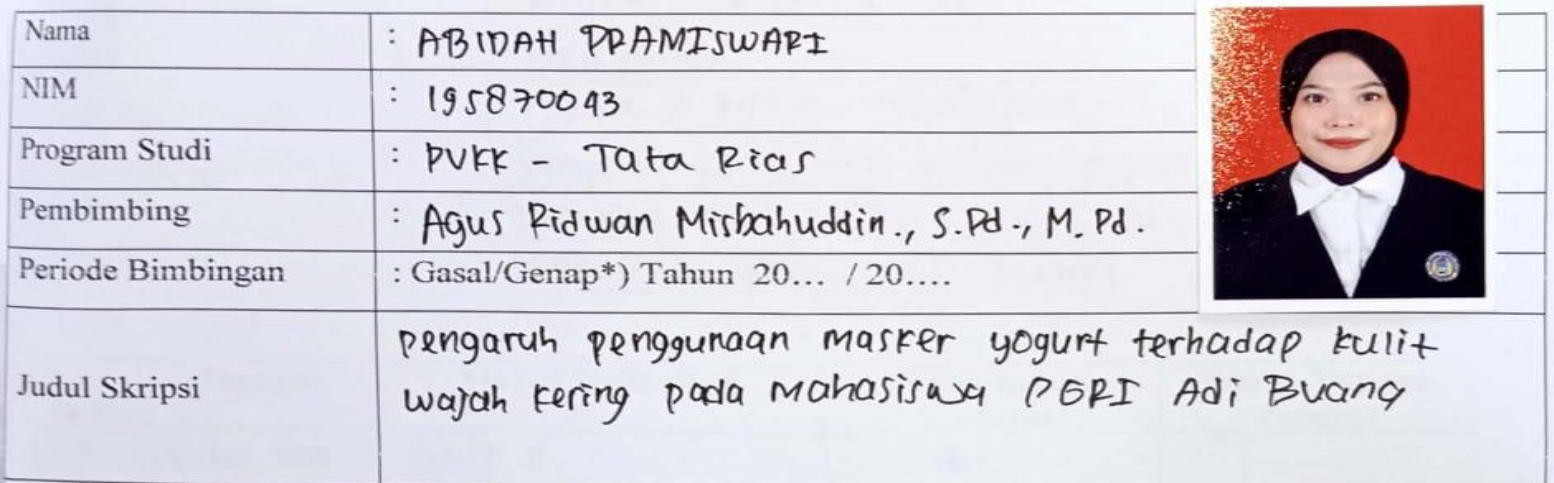 Nama : ABIDAH PRAMISWARI
NIM : 195870043
Program Studi : PVKK - Tata Rias
Pembimbing : Agus Ridwan Misbahuddin., S.Pd., M.Pd.
Periode Bimbingan : Gasal/Genap*) Tahun 20... / 20....
Judul Skripsi
pengaruh penggunaan masker yogurt terhadap kulit
wajah kering pada Mahasiswa PGRI Adi Buana